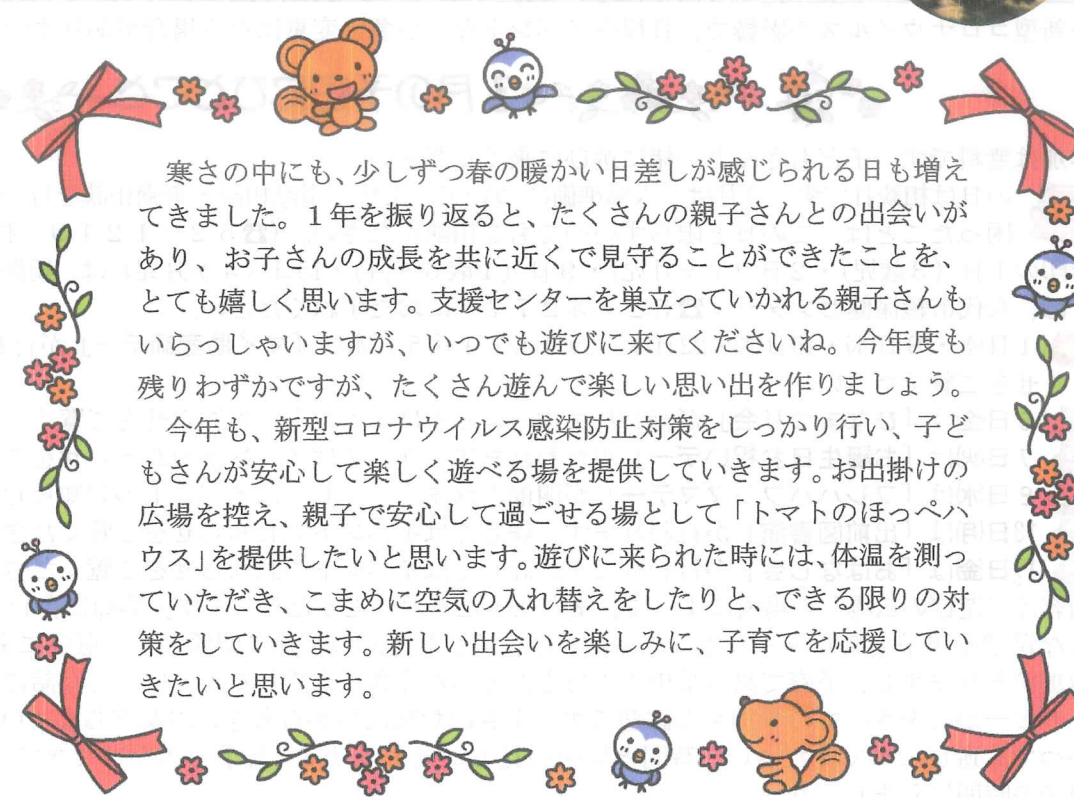 寒さの中にも、少しずつ春の暖かい日差しが感じられる日も増え
てきました。1年を振り返ると、たくさんの親子さんとの出会いが
あり、お子さんの成長を共に近くで見守ることができたことを、
とても嬉しく思います。支援センターを巣立っていかれる親子さんも
いらっしゃいますが、いつでも遊びに来てくださいね。今年度も
残りわずかですが、たくさん遊んで楽しい思い出を作りましょう。
今年も、新型コロナウイルス感染防止対策をしっかり行い、子ど
もさんが安心して楽しく遊べる場を提供していきます。お出掛けの
広場を控え、親子で安心して過ごせる場として「トマトのほっぺハ
ウス」を提供したいと思います。遊びに来られた時には、体温を測っ
ていただき、こまめに空気の入れ替えをしたりと、できる限りの対
策をしていきます。新しい出会いを楽しみに、子育てを応援してい
きたいと思います。